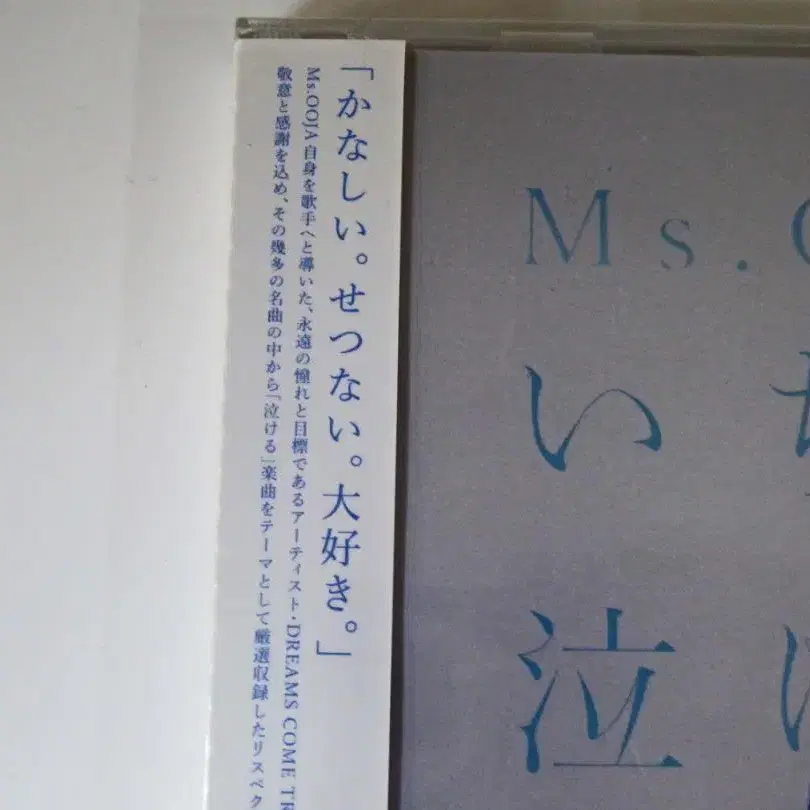 「かなしい。せつない。大好き。」
Ms.OOJA 自身を歌手へと導いた、永遠の憧れと目標であるアーティスト・DREAMS COME TR
敬意と感謝を込め、その幾多の名曲の中から「泣ける」楽曲をテーマとして厳選収録したリスペク
Ms.
い
泣